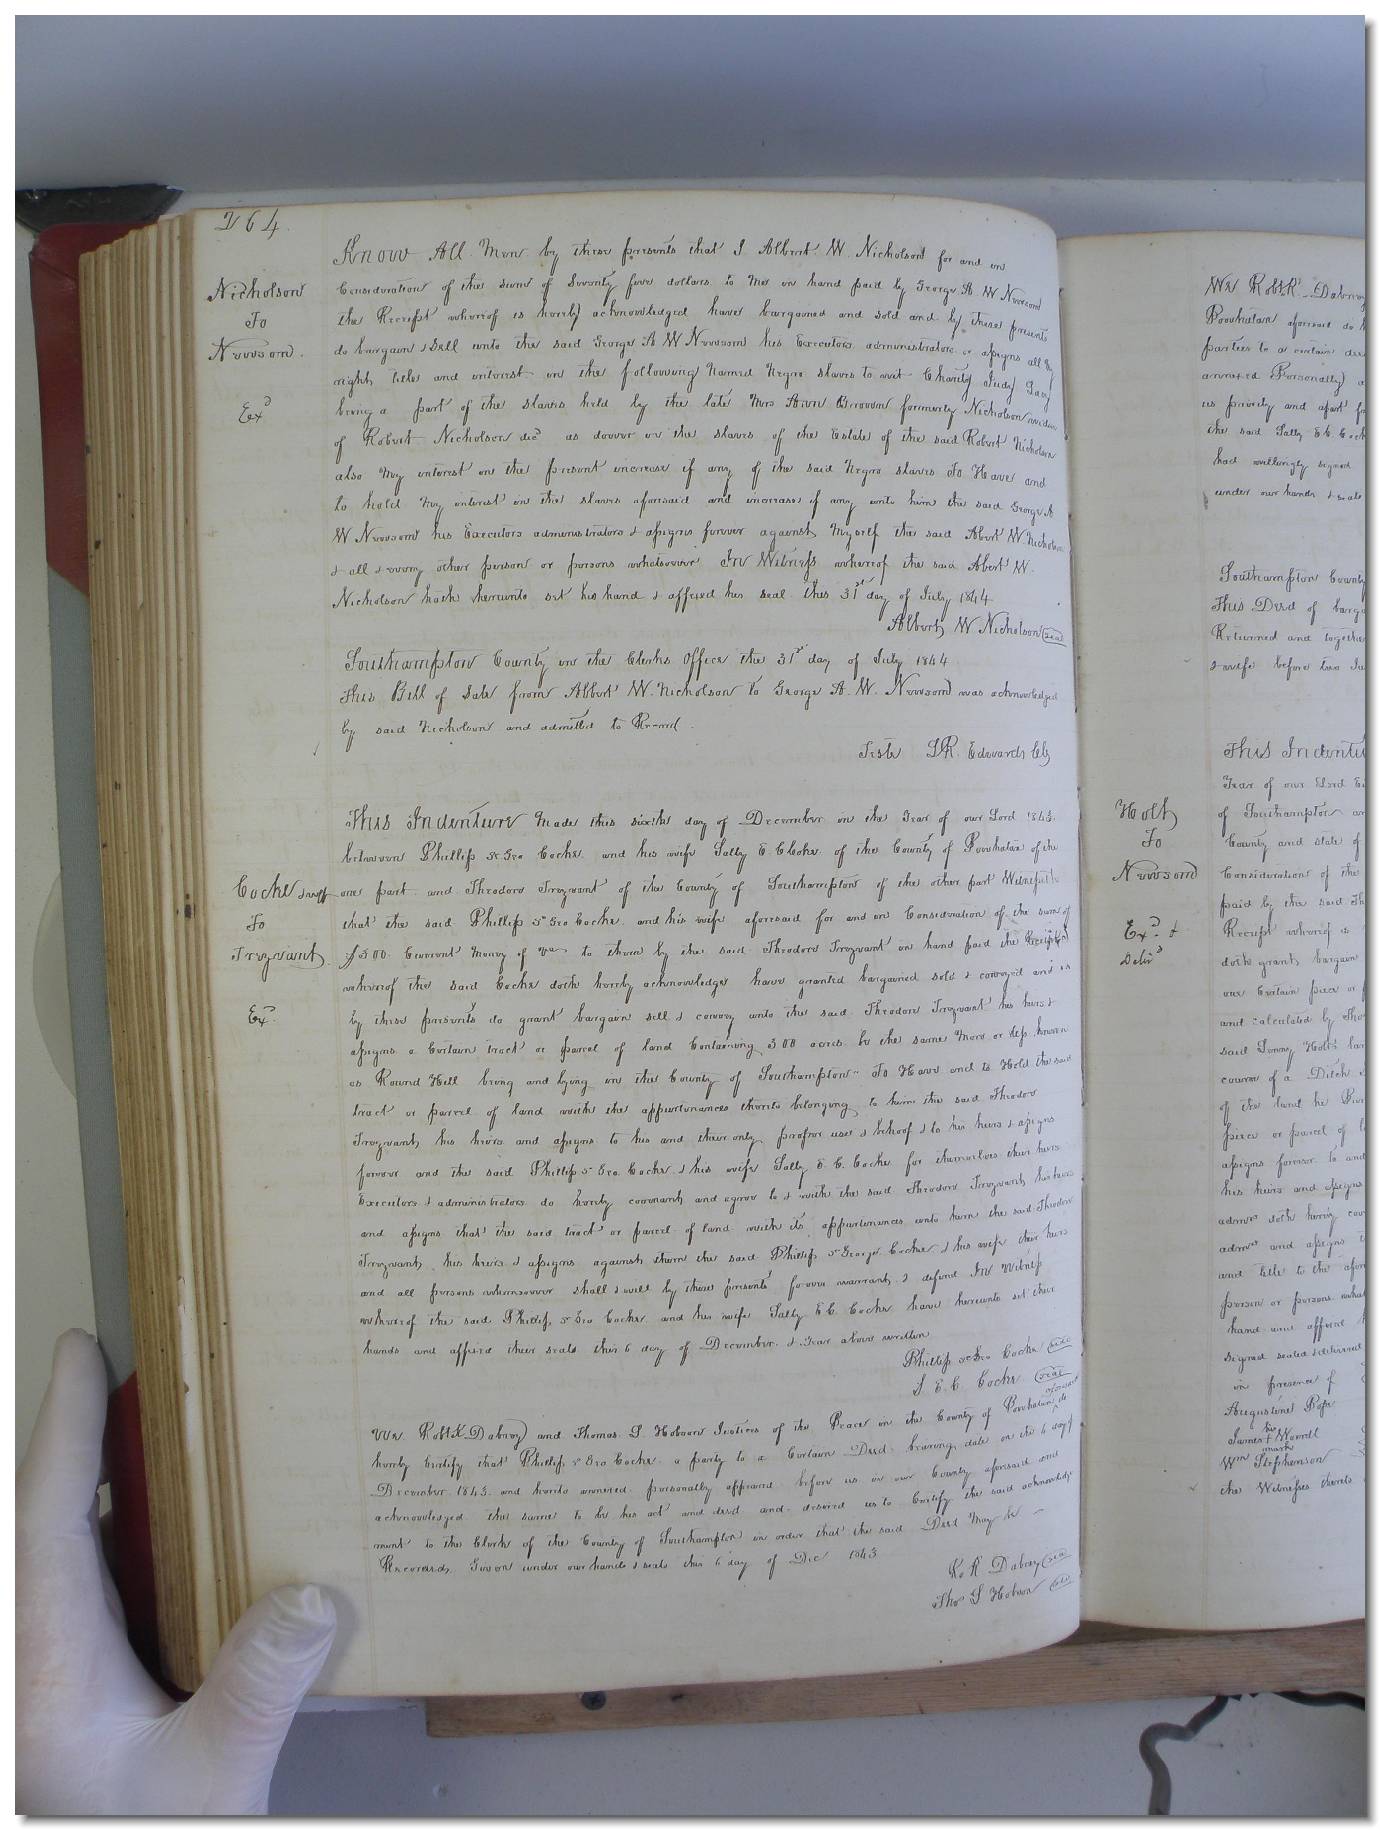 264.
Nicholson
To
Newsom.
Exd
Know All Men by these presents that I Albert W. Nicholson for and in
Consideration of the sum of Seventy five dollars to me in hand paid by George A W Newsom
the Receipt whereof is hereby acknowledged have bargained and sold and by these presents
do bargain & Sell unto the said George A W Newsom his Executors administrators or assigns all my
right title and interest in the following Named Negro slaves to wit Charity Judy
being a part of the slaves held by the late Mrs Ann Broown formerly Nicholson widow
of Robert Nicholson decd as dower in the slaves of the Estate of the said Robert Nicholson
also My interest in the present increase if any of the said Negro slaves To Have and
to hold My interest in the slaves aforesaid and increase if any unto him the said George A
W Newsom his Executors administrators & assigns forever against Myself the said Abert W. Nicholson
& all & every other person or persons whatsoever In Witness whereof the said Abert W.
Nicholson hath hereunto set his hand & affixed his seal this 31st day of July 1844
Albert W Nicholson seal
Southampton County in the Clerks Office the 31st day of July 1844
This Bill of Sale from Albert W. Nicholson to George A. W. Newsom was acknowledged
by said Nicholson and admitted to Record.
Teste L R. Edwards Clk
Cocke & wife
To
Trezvant
Ex.
This Indenture Made this sixth day of December in the Year of our Lord 1843.
between Phillip St Geo Cocke and his wife Sally E C Cocke of the County of Powhatan of the
one part and Theodore Trezvant of the County of Southampton of the other part Witnesseth
that the said Phillip St Geo Cocke and his wife aforesaid for and in Consideration of the sum of
$500. Current Money of Va to them by the said Theodore Trezvant in hand paid the Receipt
whereof the said Cocke doth hereby acknowledge have granted bargained sold & conveyed and
by these presents do grant bargain sell & convey unto the said Theodore Trezvant his heirs &
assigns a Certain tract or parcel of land Containing 300 acres be the same More or less known
as Round Hill being and lying in the County of Southampton To Have and to Hold the said
tract or parcel of land with the appurtenances thereto belonging to him the said Theodore
Trezvant his heirs and assigns to his and their only proper use & behoof & to his heirs & assigns
forever and the said Phillip St Geo. Cocke & his wife Sally E. C. Cocke for themselves their heirs
Executors & administrators do hereby covenant and agree to & with the said Theodore Trezvant his heirs
and assigns that the said tract or parcel of land with its appurtenances unto him the said Theodore
Trezvant his heirs & assigns against them the said Phillip St George Cocke & his wife their heirs
and all persons whomsoever shall & will by these presents forever warrant & defend In Witness
whereof the said Phillip St Geo Cocke and his wife Sally E C Cocke have hereunto set their
hands and affixed their seals this 6 day of December & Year above written
Phillip St Geo Cocke seal
S E. C Cocke seal
We Robt K Dabney and Thomas S. Hobson Justices of the Peace in the County of Powhatan aforesaid do
hereby Certify that Phillip St Geo Cocke a party to a Certain Deed bearing date on the 6 day of
December 1843 and hereto annexed personally appeared before us in our County aforesaid and
acknowledged the same to be his act and deed and desired us to Certify the said acknowledg
ment to the Clerk of the County of Southampton in order that the said Deed May be
Recorded Given under our hands & seals this 6 day of Dec 1843
Ro K Dabney seal
Thos S Hobson seal
Holt
To
Newsom
Exd &
Deld
We Robt K. Dabney
Powhatan aforesaid do
parties to a certain
annexed Personally
us privily and apart
the said Sally E C Cock
had willingly signed
under our hands & seals
Southampton County
This Deed of barg
Returned and together
& wife before two Ju
This Indentu
Year of our Lord
of Southampton an
County and state of
Consideration of the
paid by the said Th
Receipt whereof is
doth grant bargain
one Certain piece or
and calculated by Tho
said Holts
course of a Ditch
of the land he
piece or parcel of
assigns forever to and
his heirs and assigns
admrs doth hereby cov
admrs and assigns
and title to the afor
person or persons what
hand and affixed
signed sealed & delivered
in presence of
Augustine Pope
his
James + Worrell
mark
Wm Stephenson
the Witnesses thereto